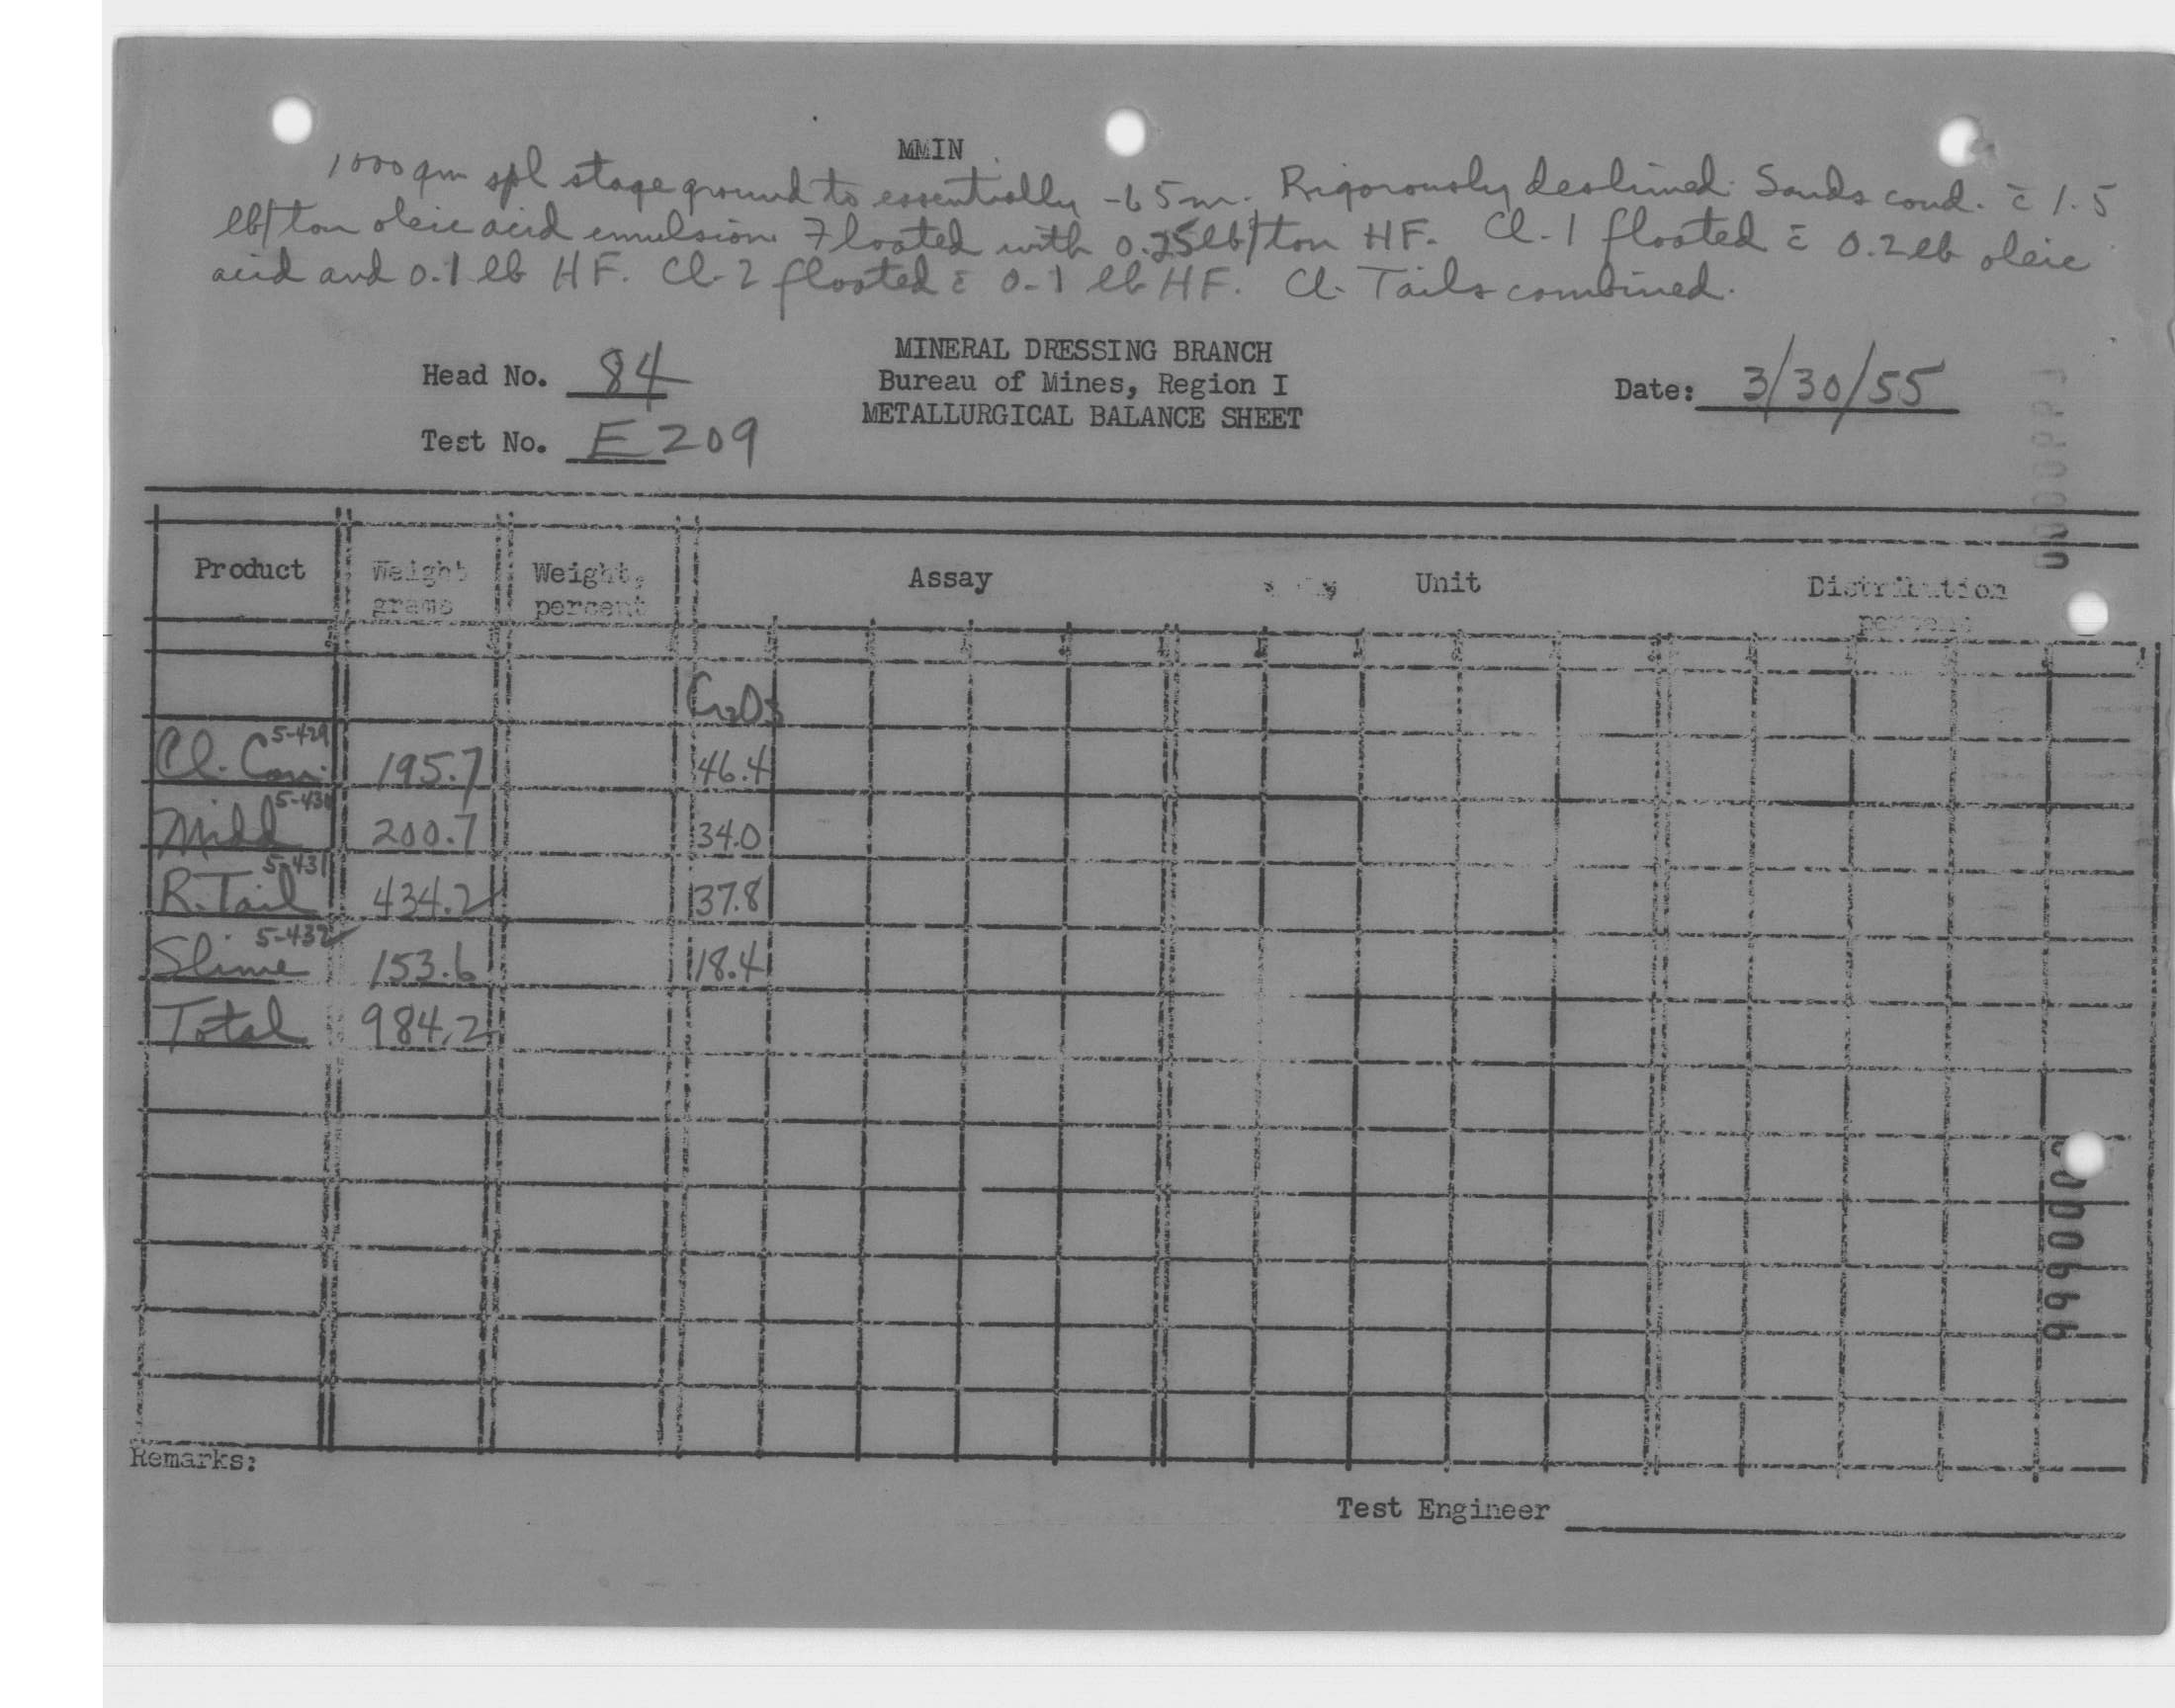 MMIN
1000 gm spl stage ground to essentially -65m. Rigorously deslimed. Sands cond. c̄ 1.5
lb/ton oleic acid emulsion. Floated with 0.25 lb/ton HF. Cl-1 floated c̄ 0.2 lb oleic
acid and 0.1 lb HF. Cl-2 floated c̄ 0.1 lb HF. Cl. Tails combined.
MINERAL DRESSING BRANCH
Head No. 84 Bureau of Mines, Region I Date: 3/30/55
METALLURGICAL BALANCE SHEET
Test No. E 209
Product Weight grams Weight, percent Assay Unit Distribution percent
Cr2O3
Cl. Con. 5-429 195.7 46.4
Midd 5-430 200.7 34.0
R. Tail 5-431 434.2 37.8
Slime 5-432 153.6 18.4
Total 984.2
Remarks:
Test Engineer